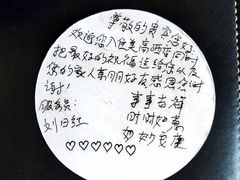 尊敬的贵宾您好
欢迎您入住美高酒店同时
把最好的祝福送给您以及
您的家人亲朋好友感恩您付
讨!
服务员:
刘日红
事事吉祥
时时如意
妙妙安康
♡♡♡♡♡♡